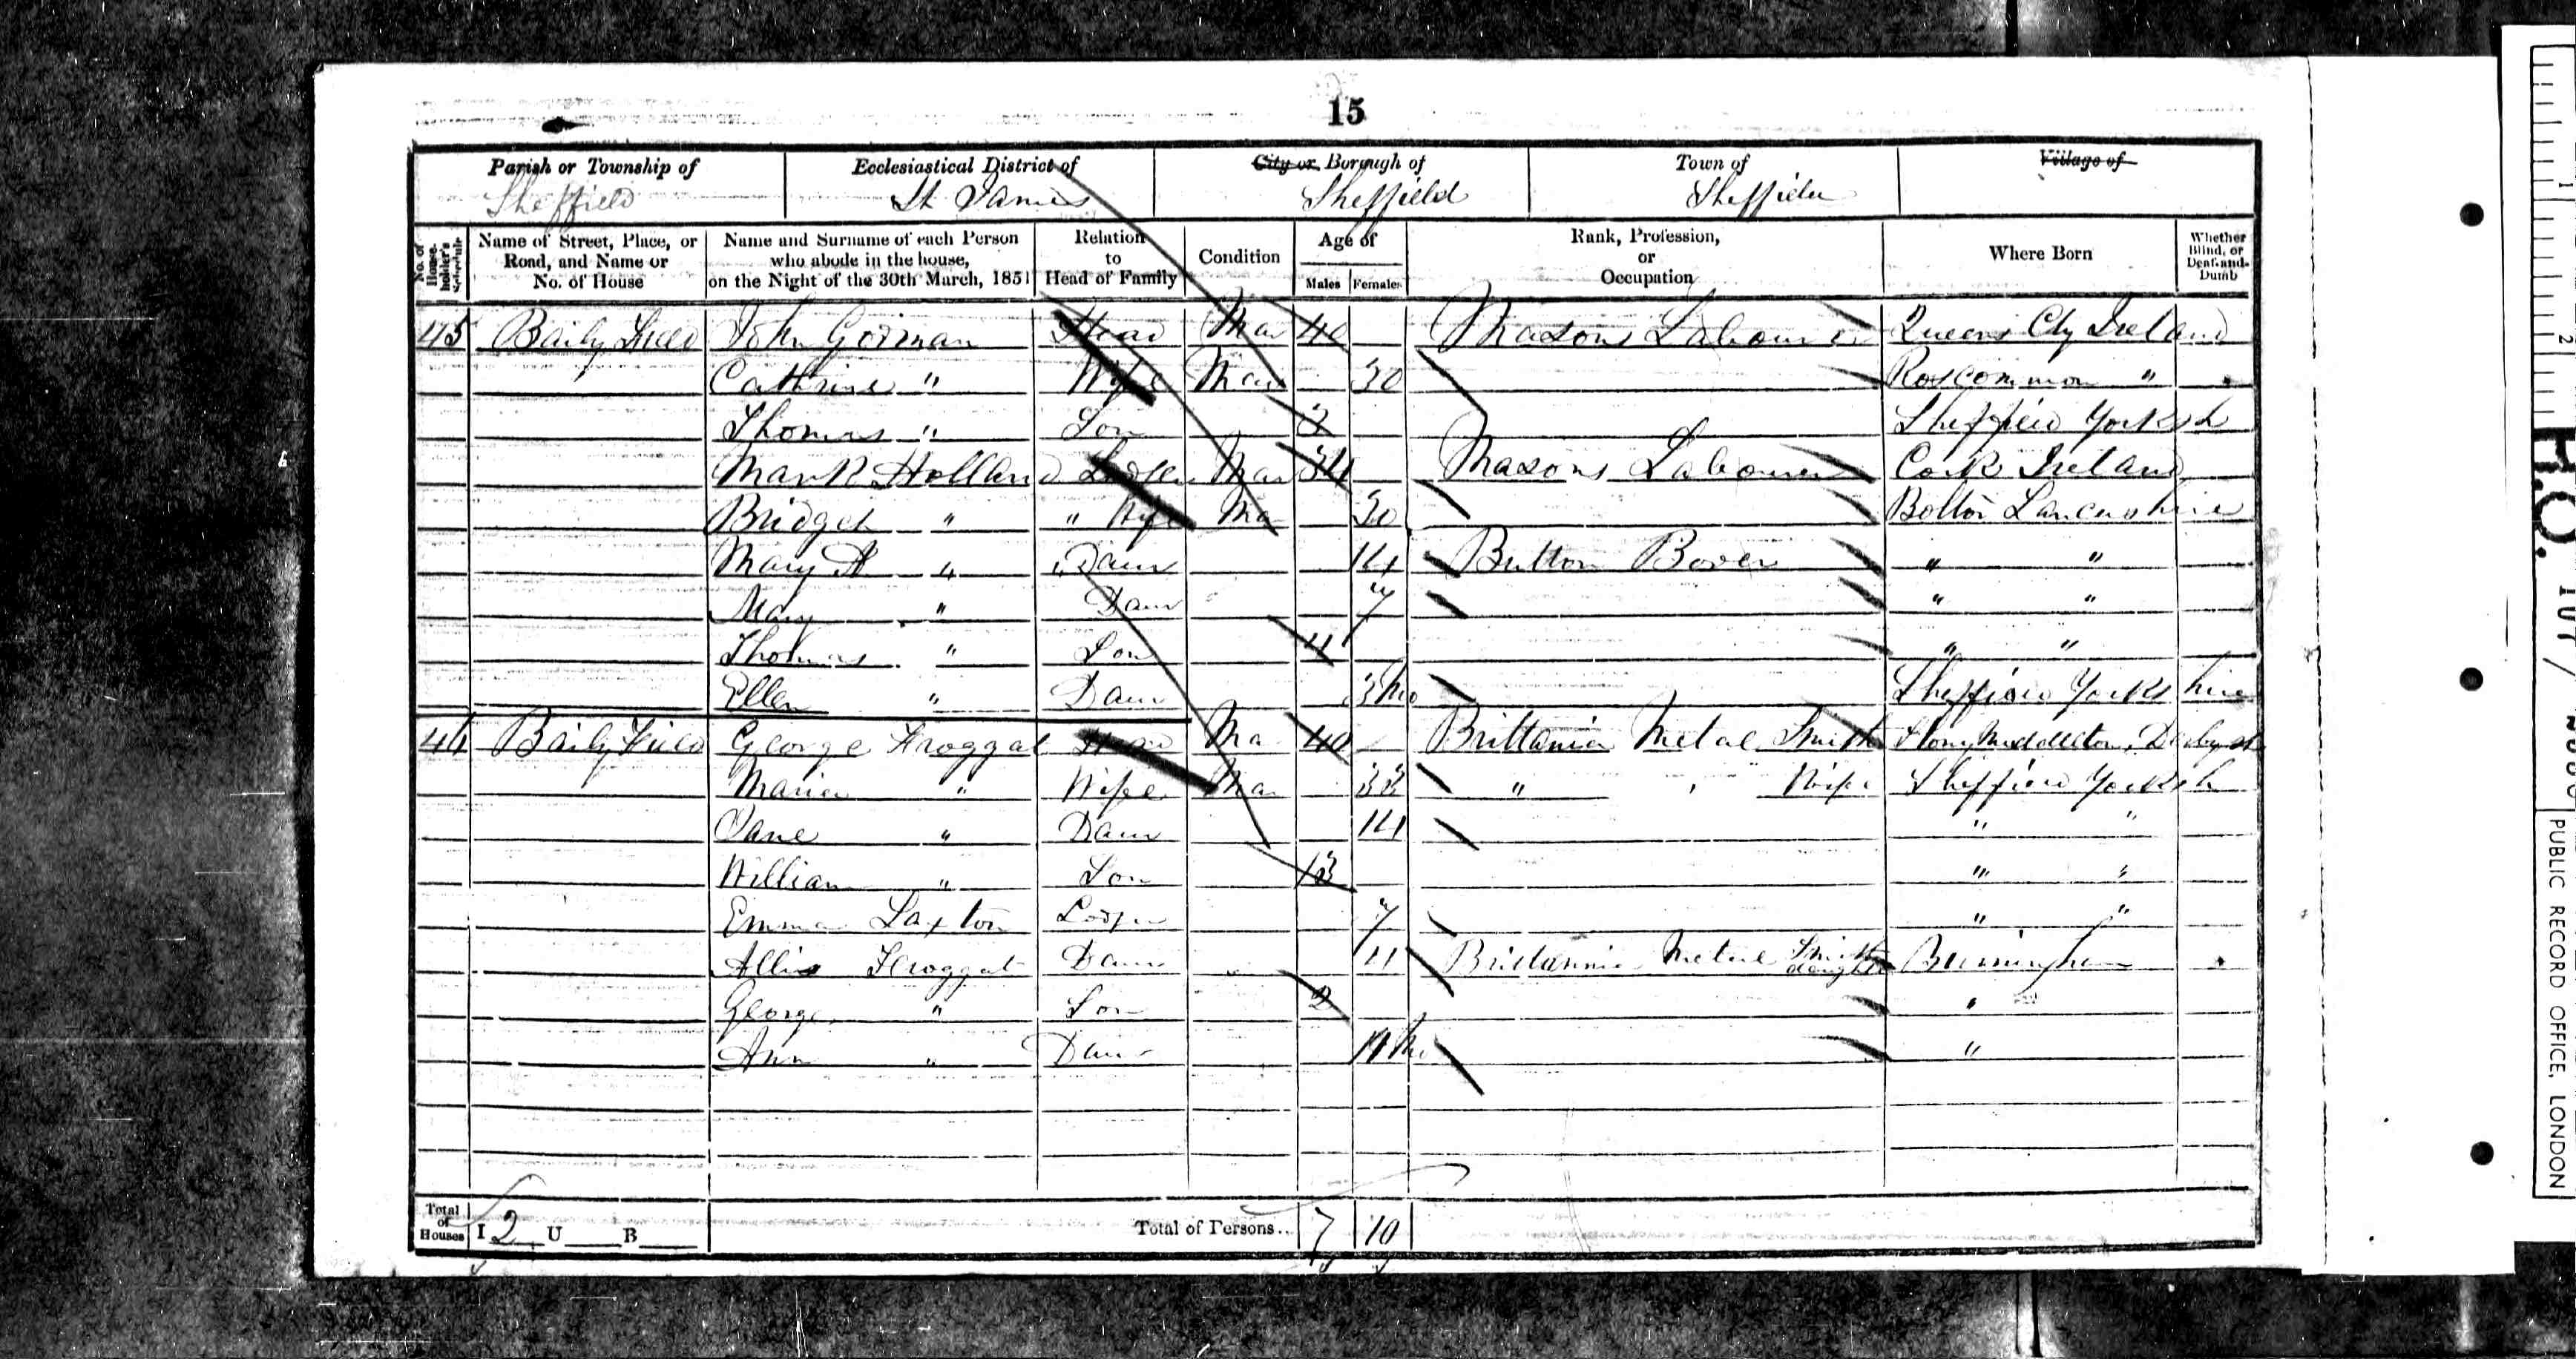 15
Parish or Township of Ecclesiastical District of City or Borough of Town of Village of
Sheffield St James Sheffield Sheffield
No. of House-holder's Schedule Name of Street, Place, or Road, and Name or No. of House Name and Surname of each Person who abode in the house, on the Night of the 30th March, 1851 Relation to Head of Family Condition Age of Males Females Rank, Profession, or Occupation Where Born Whether Blind, or Deaf-and-Dumb
45 Baily Field John Gorman Head Mar 40 Masons Labourer Queens Cty Ireland
Cathrine " Wife Mar 30 Roscommon "
Thomas " Son 3 Sheffield Yorksh
Mark Holland Lodger Mar 34 Masons Labourer Cork Ireland
Bridget " " Wife Ma 30 Bolton Lancashire
Mary A " " Daur 14 Button " "
Mary " Daur 7 " "
Thomas " Son 4 " "
Ellen " Daur 3 Mo Sheffield Yorkshire
46 Baily Field George Froggat Head Ma 40 Brittania Metal Smith Stony Middleton, Derbysh
Maria " Wife Mar 33 " " Wife Sheffield Yorksh
Jane " Daur 14 " "
William " Son 13 " "
Emma Laxton Lodger 7 " "
Froggat Daur 4 Brittannia Metal Smith daughter Birmingham
George " Son 2 "
Ann " Daur Mo "
Total of Houses I 2 U B Total of Persons... 7 10
PUBLIC RECORD OFFICE, LONDON
H.O. 107/
1
2